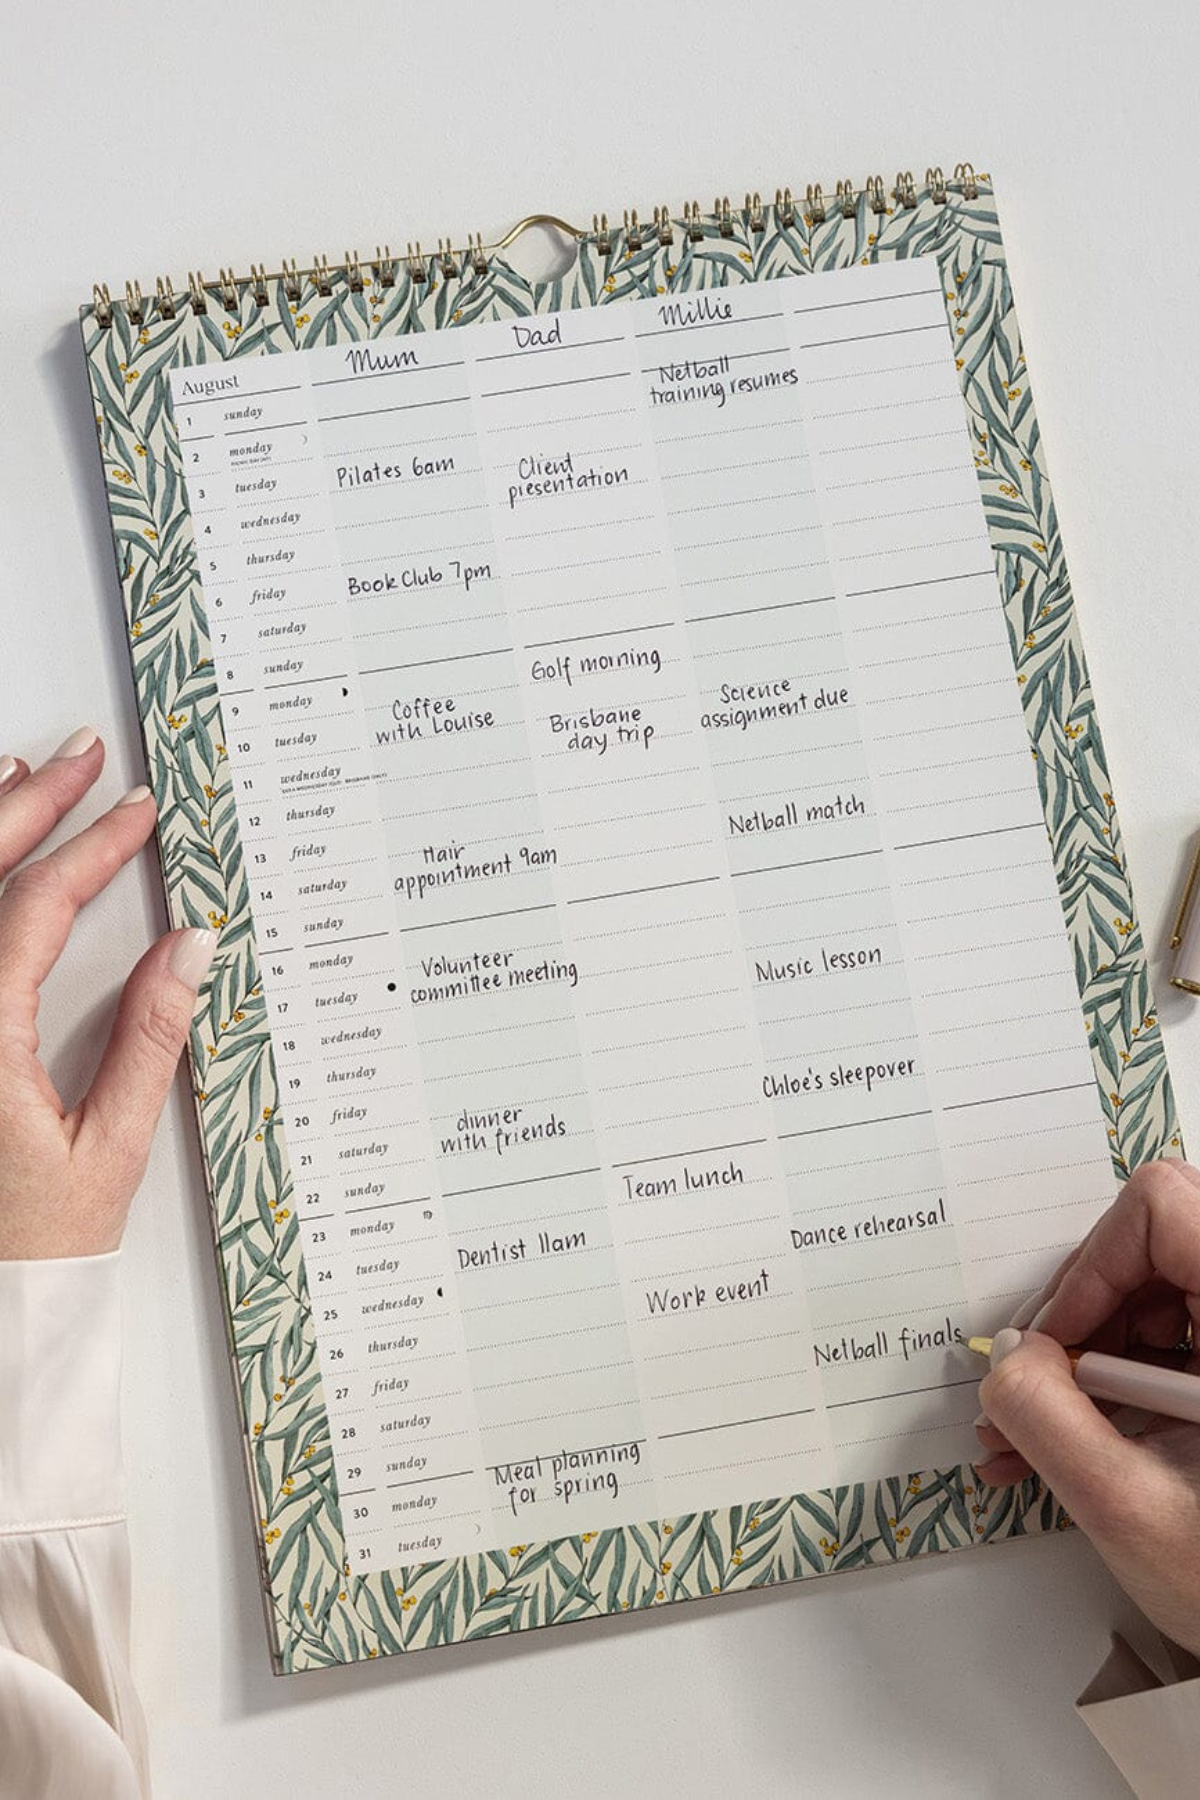 August Mum Dad Millie
1 sunday
Netball
training resumes
2 monday
3 tuesday Pilates 6am Client
presentation
4 wednesday
5 thursday
6 friday Book Club 7pm
7 saturday
8 sunday
Golf morning
9 monday
10 tuesday Coffee
with Louise Brisbane
day trip Science
assignment due
11 wednesday
12 thursday
13 friday Netball match
14 saturday Hair
appointment 9am
15 sunday
16 monday
17 tuesday Volunteer
committee meeting Music lesson
18 wednesday
19 thursday
20 friday Chloe's sleepover
21 saturday dinner
with friends
22 sunday
23 monday Team lunch
24 tuesday Dentist 11am Dance rehearsal
25 wednesday
26 thursday Work event
27 friday Netball finals
28 saturday
29 sunday
30 monday Meal planning
for spring
31 tuesday